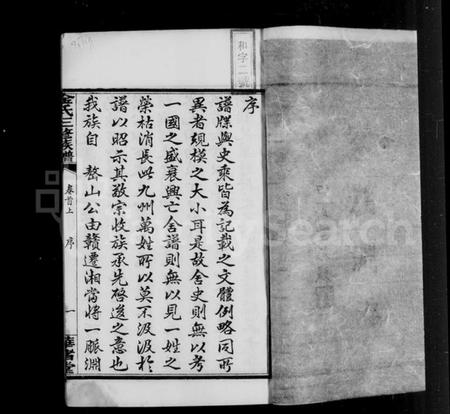 和字二號
序
譜牒與史乘皆為記載之文體例略同所
異者規模之大小耳是故舍史則無以考
一國之盛衰興亡舍譜則無以見一姓之
榮枯消長此九州萬姓所以莫不汲汲於
譜以昭示其敬宗收族承先啓後之意也
我族自 鰲山公由贛遷湘當將一脈淵
氏三修族譜
卷首上 序 一
堂